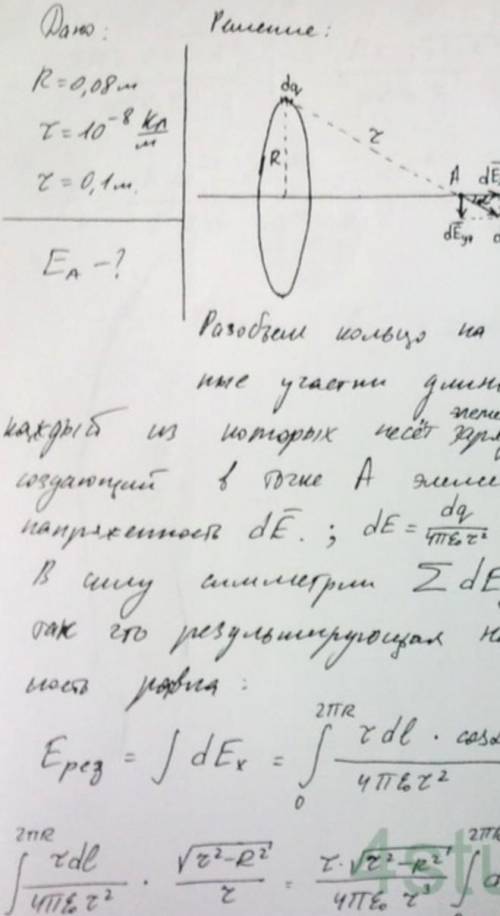 Дано: Решение:
R = 0,08 м
τ = 10⁻⁸ Кл/м
r = 0,1 м.
E_A - ?
dq
R
r
A
dE
dE_y
Разобьем кольцо на
ные участки длин
каждый из которых несёт элем заря
создающий в точке A элеме
напряженность dE̅. ; dE = dq / 4πε₀r²
В силу симметрии Σ dE
так что результирующая на
ность равна:
E_рез = ∫ dE_x = ∫₀^{2πR} τ dl · cosα / 4πε₀r²
∫^{2πR} τ dl / 4πε₀r² · √(r²-R²) / r = τ · √(r²-R²) / 4πε₀ r³ ∫^{2πR} d
4stu